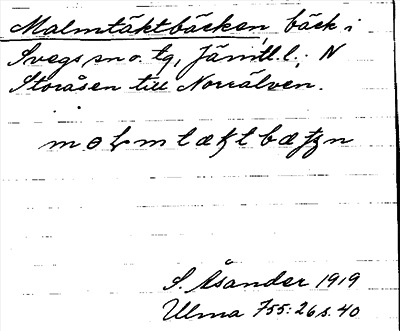 Malmtäktbäcken, bäck i
Svegs sn o. tg, Jämtl. l.; N
Storåsen till Norrälven.
S. Åsander 1919
Ulma 755:26 s. 40